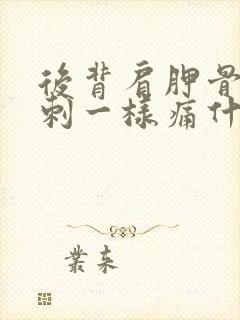 後背肩胛骨
刺一樣痛什
業來